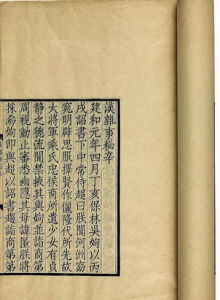 漢雜事秘辛
建和元年四月丁亥保林吳姁以丙
戌詔書下中常侍超曰朕聞河洲窈
窕明辟思服擇賢作儷隆代所先故
大將軍乘氏忠侯商所遺少女有貞
靜之德流聞禁掖其與姁並詣商第
周視動止審悉幽隱其毋諱匿朕將
採焉姁即與超以詔書趨詣商第第